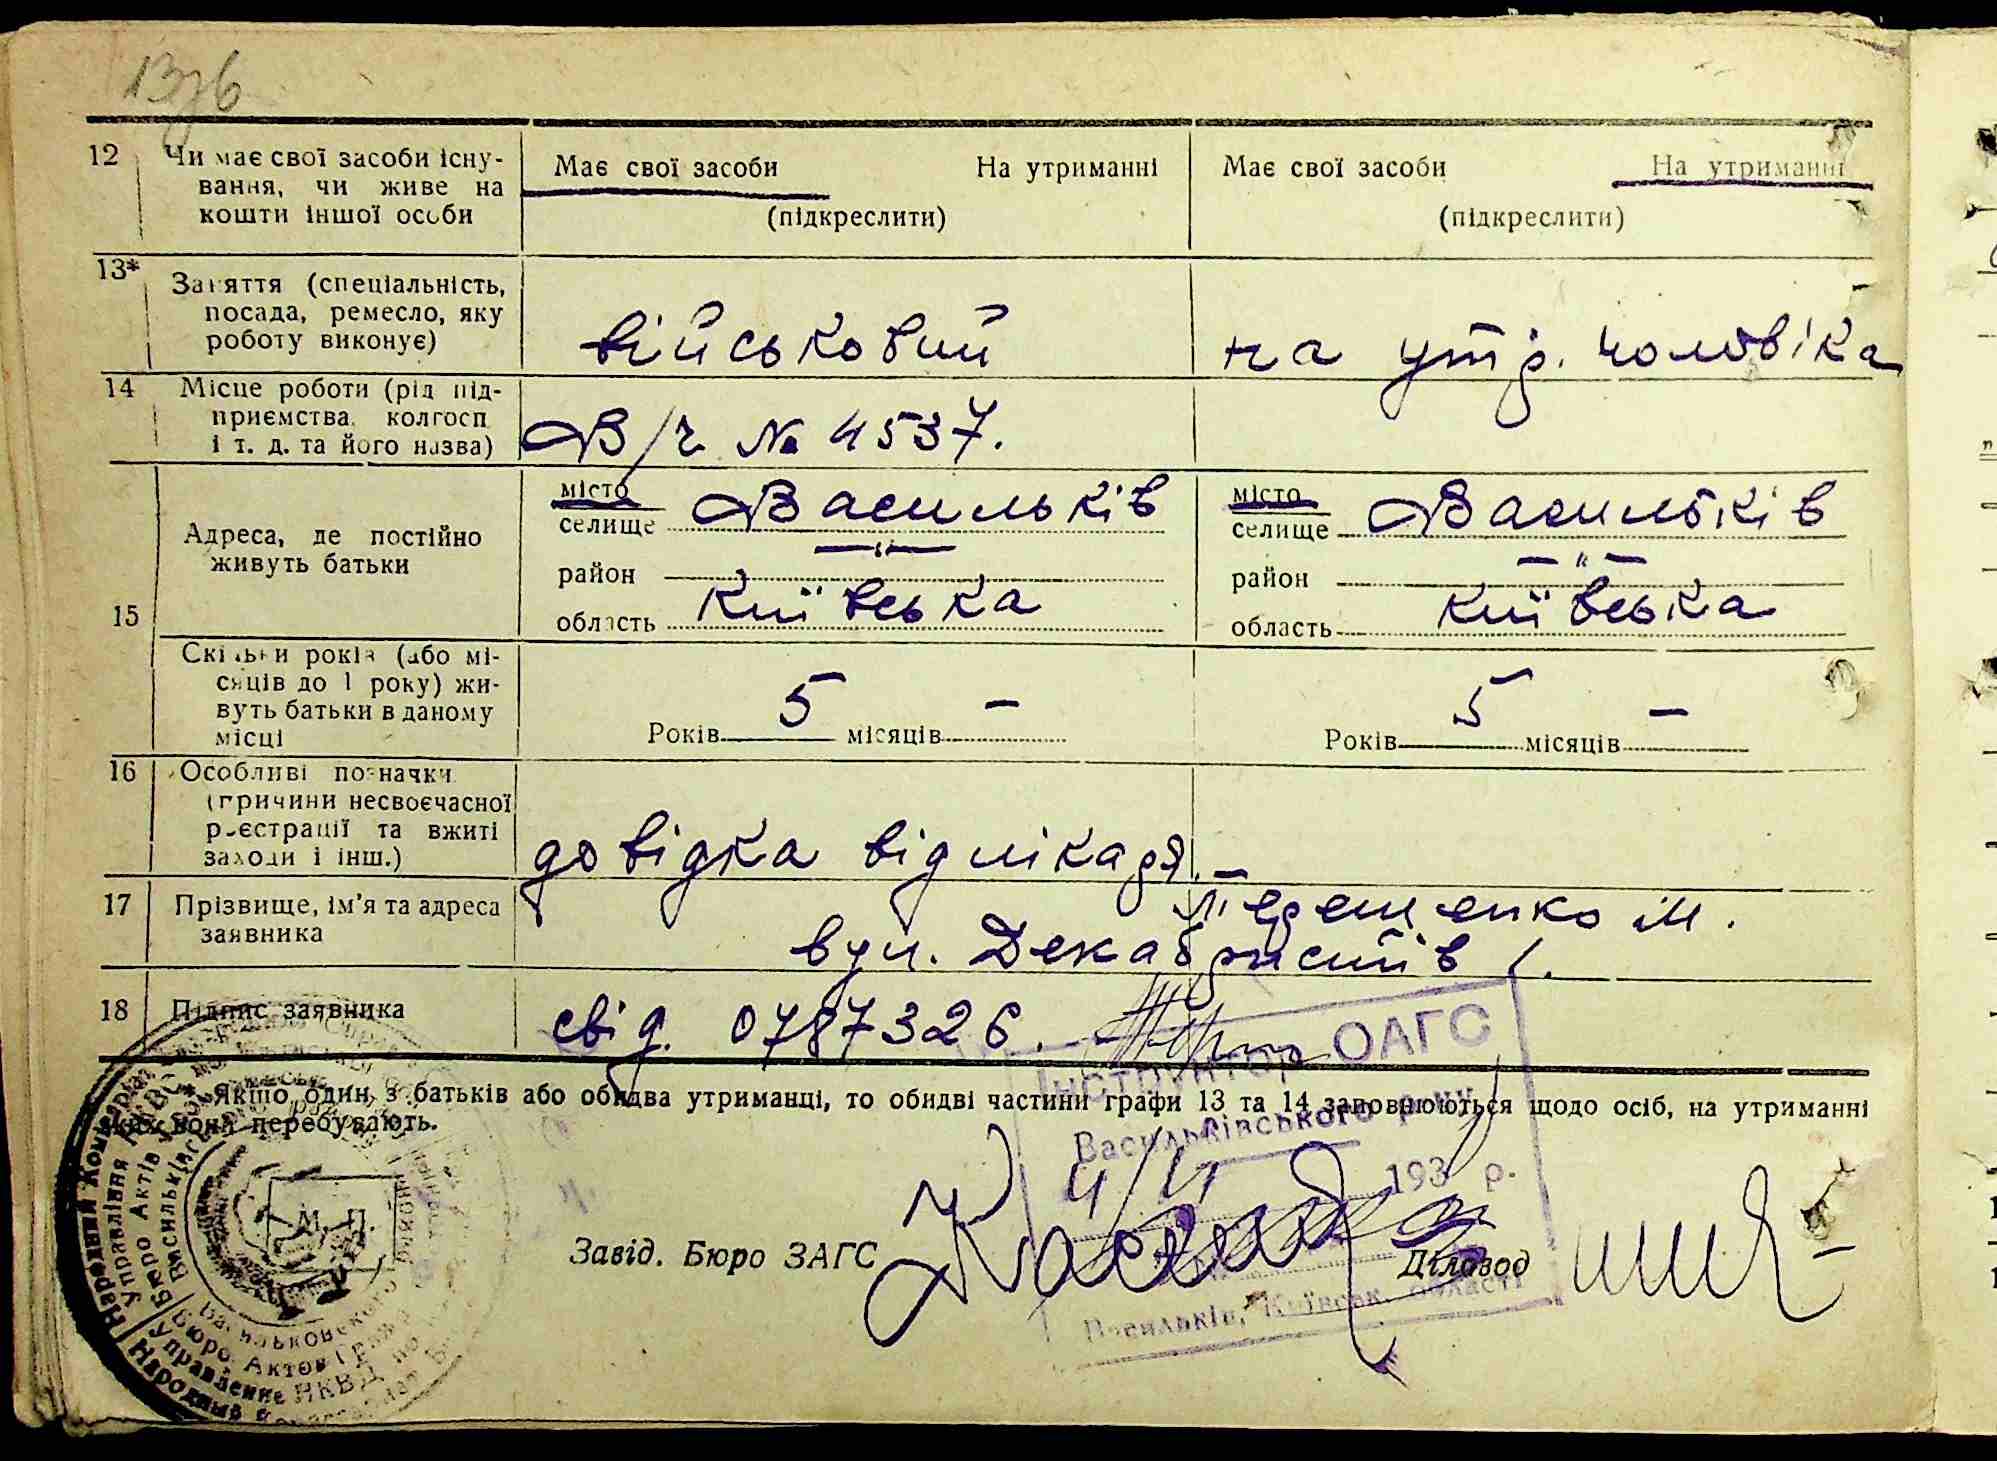 12 Чи має свої засоби існу-
вання, чи живе на
кошти іншої особи
Має свої засоби На утриманні
(підкреслити)
Має свої засоби На утриманні
(підкреслити)
13* Заняття (спеціальність,
посада, ремесло, яку
роботу виконує)
військовий
на утр. чоловіка
14 Місце роботи (рід під-
приємства, колгосп
і т. д. та його назва)
В/ч № 4537.
15
Адреса, де постійно
живуть батьки
місто
селище Васильків
район —"—
область Київська
місто
селище Васильків
район —"—
область Київська
Скільки років (або мі-
сяців до 1 року) жи-
вуть батьки в даному
місці
Років 5 місяців —
Років 5 місяців —
16 Особливі позначки
(причини несвоєчасної
реєстрації та вжиті
заходи і інш.)
довідка від лікаря. —
17 Прізвище, ім'я та адреса
заявника
М.
вул. Декабристів 1.
18 Підпис заявника
свід. 0787326.
Якщо один з батьків або обидва утриманці, то обидві частини графи 13 та 14 заповнюються щодо осіб, на утриманні
яких вони перебувають.
Інструктор ОАГС
Васильківського р-ну
193 р.
Васильків, Київськ. області
М. П.
Завід. Бюро ЗАГС
Діловод
Народный
Управление НКВД по
Бюро Актов Гражд
Васильковского